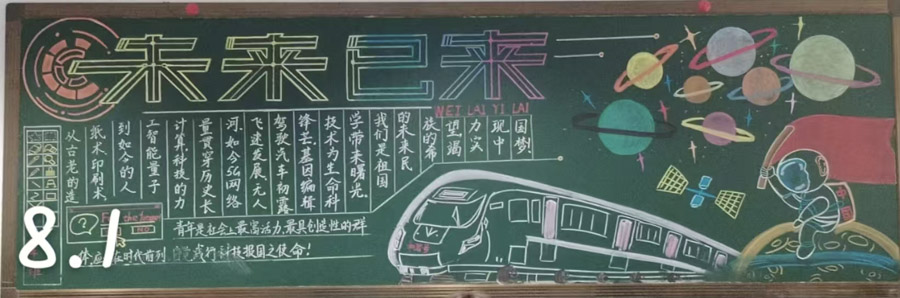 未来已来
WEI LAI YI LAI
从古老的造
纸术、印刷术
到如今的人
工智能、量子
计算,科技的力
量贯穿历史长
河。如今5G网络
飞速发展,无人
驾驶汽车初露
锋芒,基因编辑
技术为生命科
学带来曙光。
我们是祖国
的未来,民
族的希
望,竭
力实
现中
国梦!
?
For the
NO
青年是社会上最富活力、最具创造性的群
体,应 在时代前列 践行科技报国之使命!
8.1